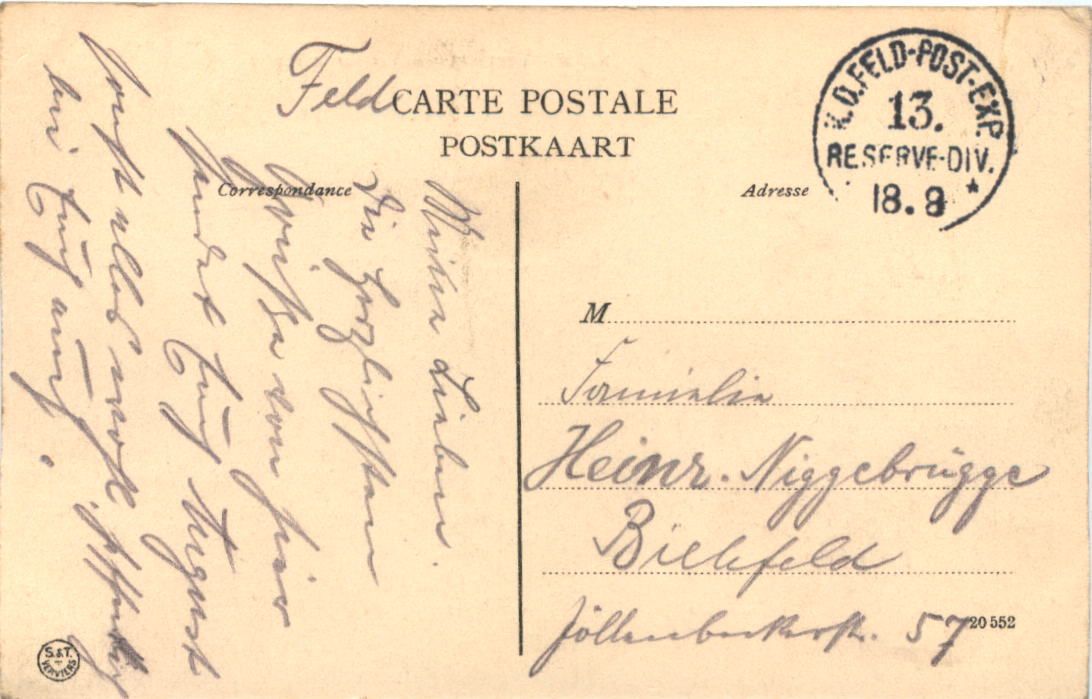 Feld
CARTE POSTALE
POSTKAART
Correspondance
Adresse
K.D.FELD-POST-EXP.
13.
RESERVE-DIV.
18.8
*
Meine Lieben.
Die herzlichsten
Grüße von hier
sendet Euch August
sonst alles wohl, hoffentlich
bei Euch auch.
M
Familie
Heinr. Niggebrügge
Bielefeld
Jöllenbeckerstr. 57
20 552
S.&T.
VERVIERS